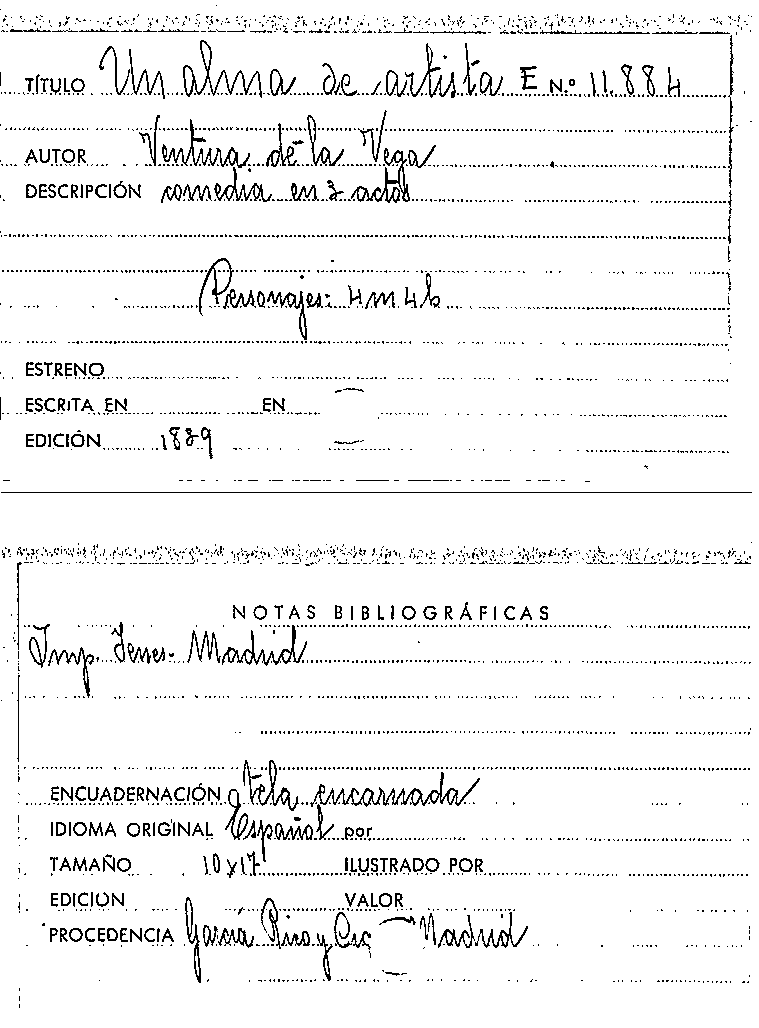 TÍTULO Un alma de artista E N.º 11.884
AUTOR Ventura de la Vega
DESCRIPCIÓN comedia en 3 actos
Personajes: 4 m 4 h
ESTRENO
ESCRITA EN EN
EDICIÓN 1889
NOTAS BIBLIOGRÁFICAS
Imp. Madrid
ENCUADERNACIÓN tela encarnada
IDIOMA ORIGINAL Español por
TAMAÑO 10x17 ILUSTRADO POR
EDICION VALOR
PROCEDENCIA García Rico y Cía — Madrid